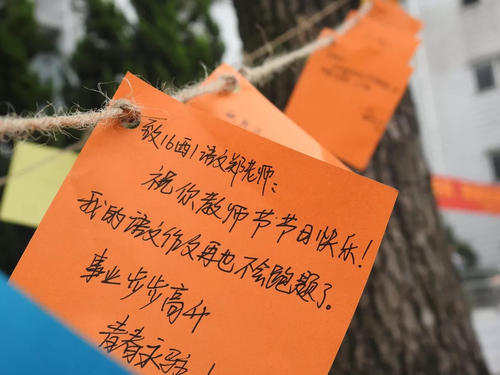 致16西1语文郑老师：
祝你教师节节日快乐！
我的语文作文再也不会跑题了。
事业步步高升
青春永驻！